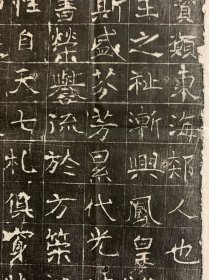 顛東海郯人也
之祉漸興鳳皇
斯盛芬芳累代光
書榮譽流於方策
性自天七札俱穿